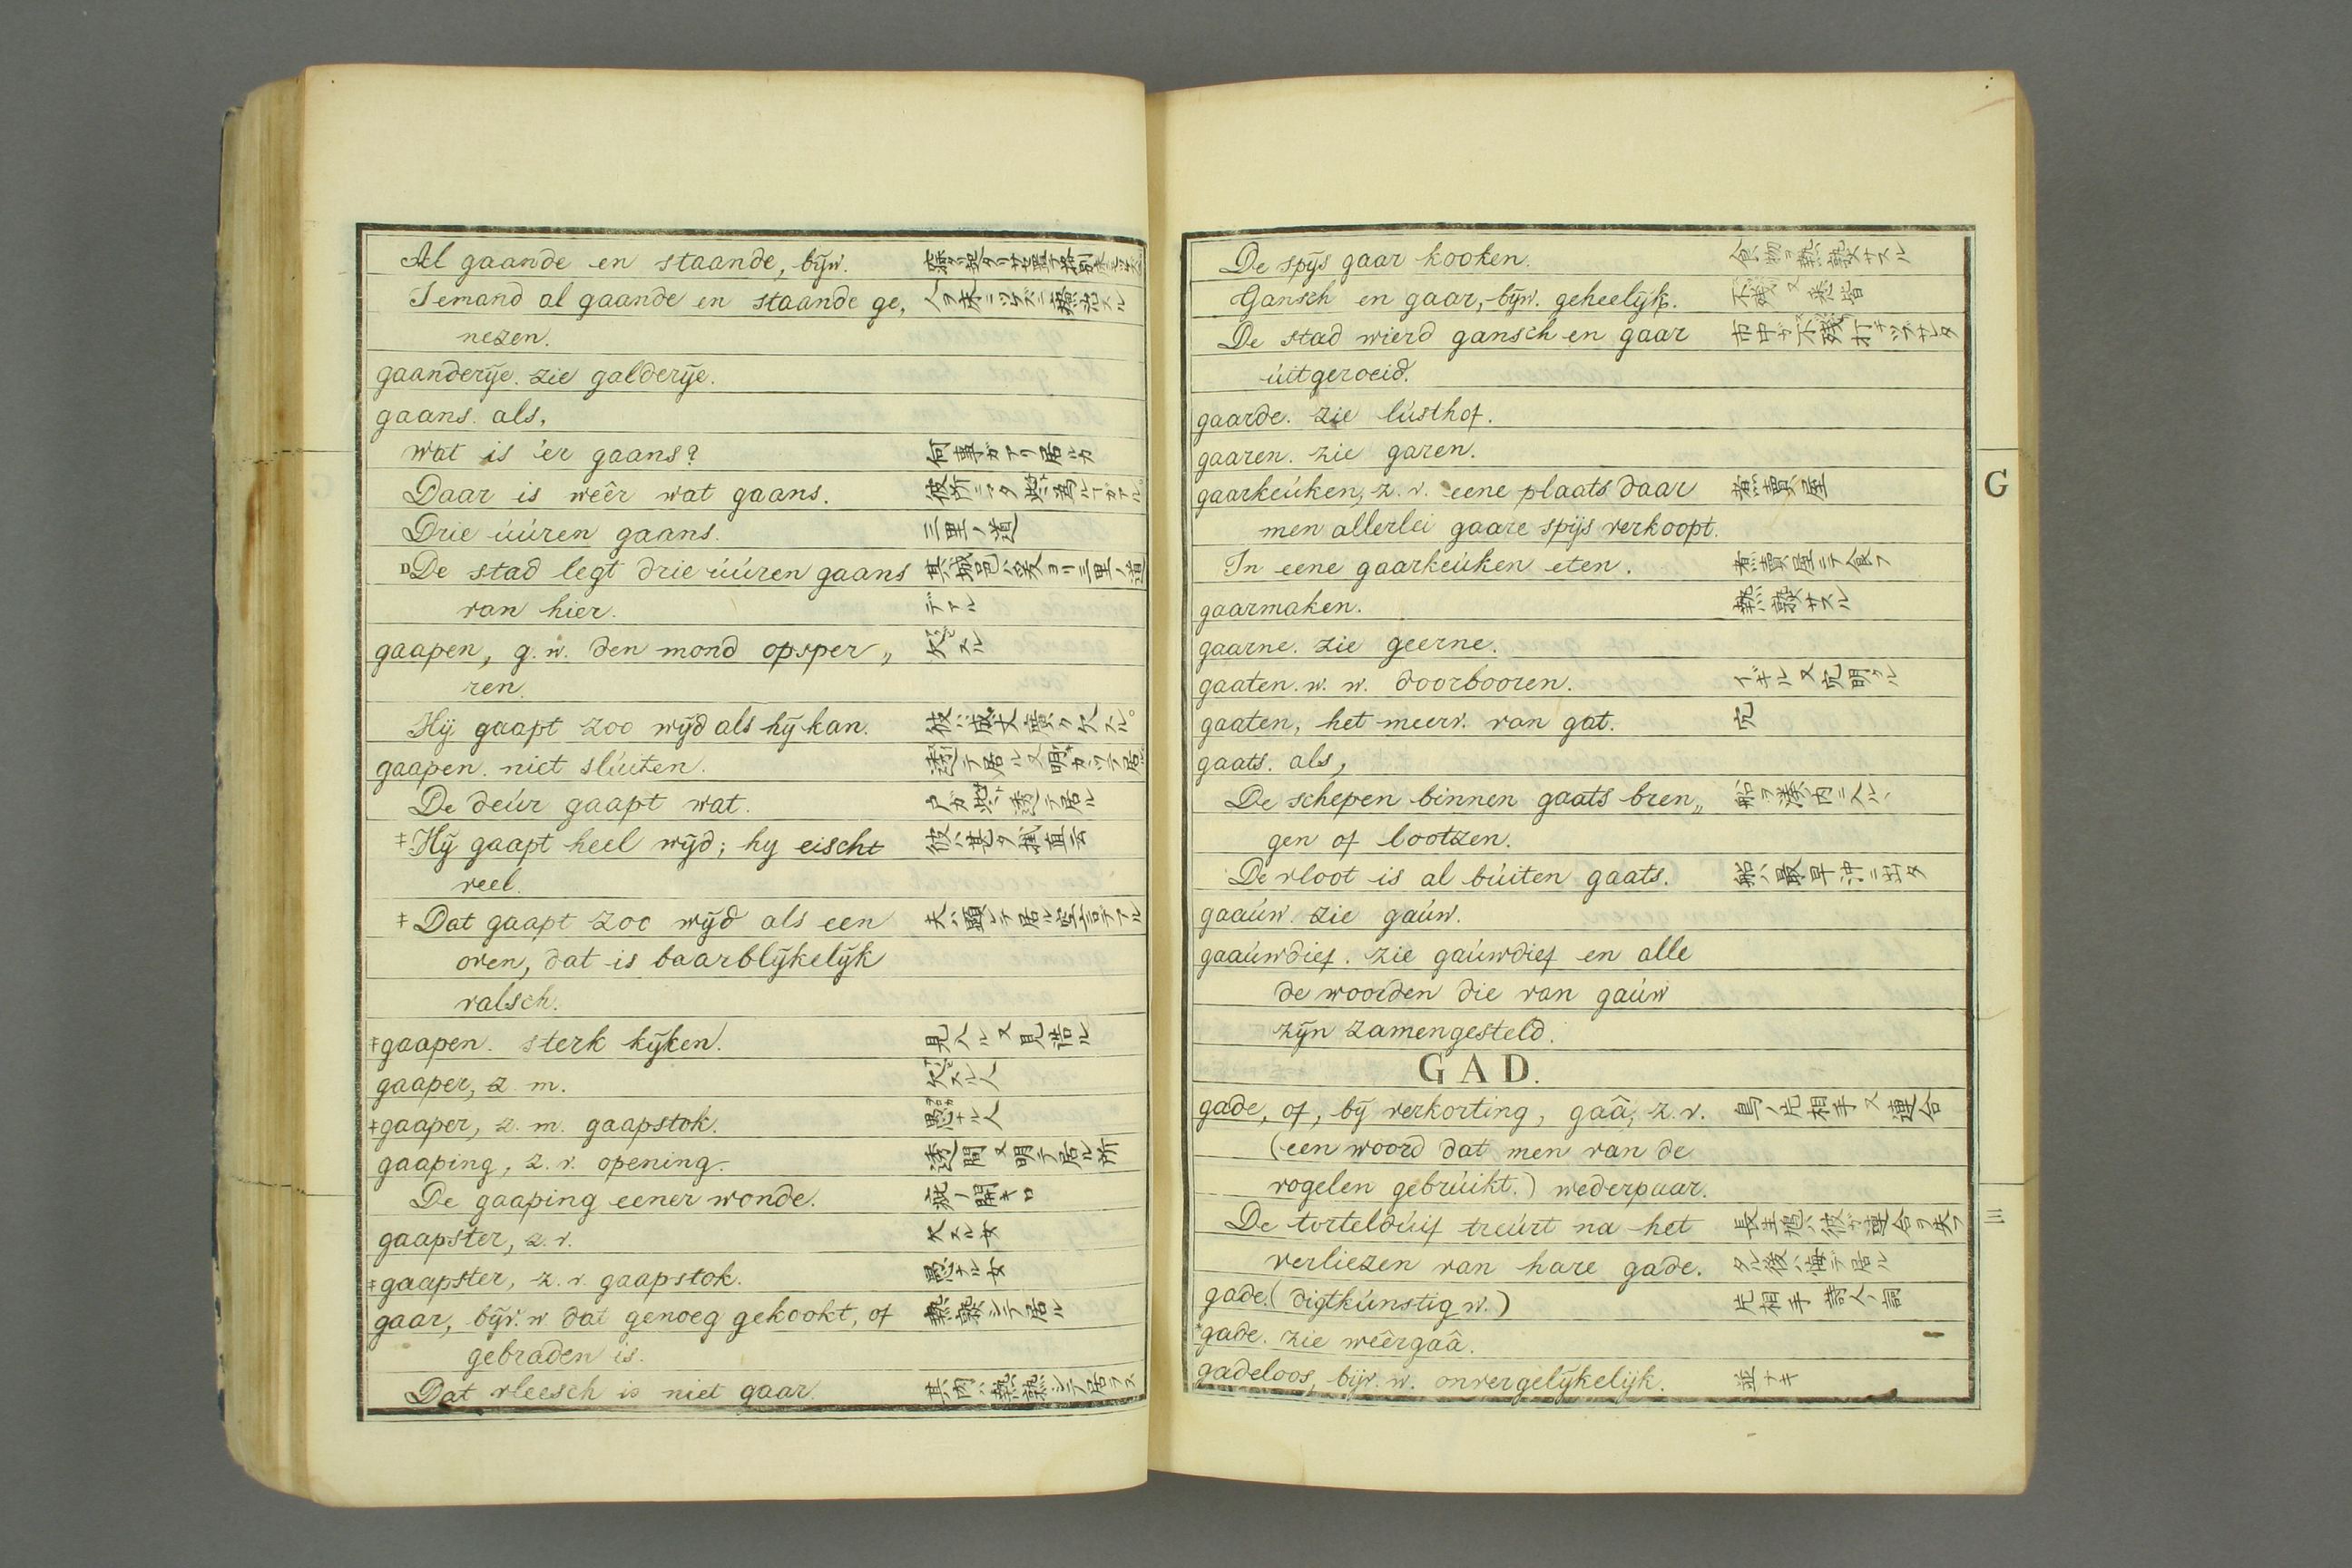 Al gaande en staande, bijw.
Iemand al gaande en staande ge,
nezen.
gaanderije. zie galderije.
gaans. als,
wat is 'er gaans? 何事ガアリ居ルカ
Daar is weêr wat gaans.
Drie úúren gaans. 三里ノ道
De stad legt drie úúren gaans 其城邑ハ爰ヨリ三里ノ道
van hier. デアル
gaapen, g. w. den mond opsper„ 欠スル
ren.
Hij gaapt zoo wijd als hij kan. 彼ハ成丈廣ク欠スル。
gaapen. niet slúiten.
De deúr gaapt wat. 戸ガ些透テ居ル
‡Hij gaapt heel wijd; hy eischt
veel.
‡Dat gaapt zoo wijd als een 夫ハ顕レテ居ル空言デアル
oven, dat is baarblijkelijk
valsch.
‡gaapen. sterk kijken. 見入ル又見詰ル
gaaper, z. m. 欠スル人
‡gaaper, z. m. gaapstok. 愚ナル人
gaaping, z. v. opening. 透間又明テ居ル所
De gaaping eener wonde. 疵ノ開キ口
gaapster, z. v. 欠スル女
‡gaapster, z. v. gaapstok. 愚ナル女
gaar, bijv. w. dat genoeg gekookt, of
gebraden is.
Dat vleesch is niet gaar.
De spijs gaar kooken.
Gansch en gaar, bijw. geheelijk. 不残又悉皆
De stad wierd gansch en gaar
úitgeroeid.
gaarde. zie lústhof.
gaaren. zie garen.
gaarkeúken, z. v. eene plaats daar 煮賣屋
men allerlei gaare spijs verkoopt.
In eene gaarkeúken eten. 煮賣屋ニテ食フ
gaarmaken.
gaarne. zie geerne.
gaaten. w. w. doorbooren.
gaaten, het meerv. van gat. 穴
gaats. als,
De schepen binnen gaats bren„ 船ヲ湊内ニ入ル
gen of lootzen.
De vloot is al búiten gaats. 船ハ最早沖ニ出タ
gaaúw. zie gaúw.
gaaúwdief. zie gaúwdief en alle
de woorden die van gaúw
zijn zamengesteld.
GAD.
gade, of, bij verkorting, gaâ, z. v. 鳥ノ片相手又連合
(een woord dat men van de
vogelen gebrúikt.) wederpaar.
De tortelduif treúrt na het
verliezen van hare gade. タル後ハ悔デ居ル
gade. (digtkúnstig w.) 片相手 詩人ノ詞
*gade. zie weêrgaâ.
gadeloos, bijv. w. onvergelijkelijk. 並ナキ
G
三